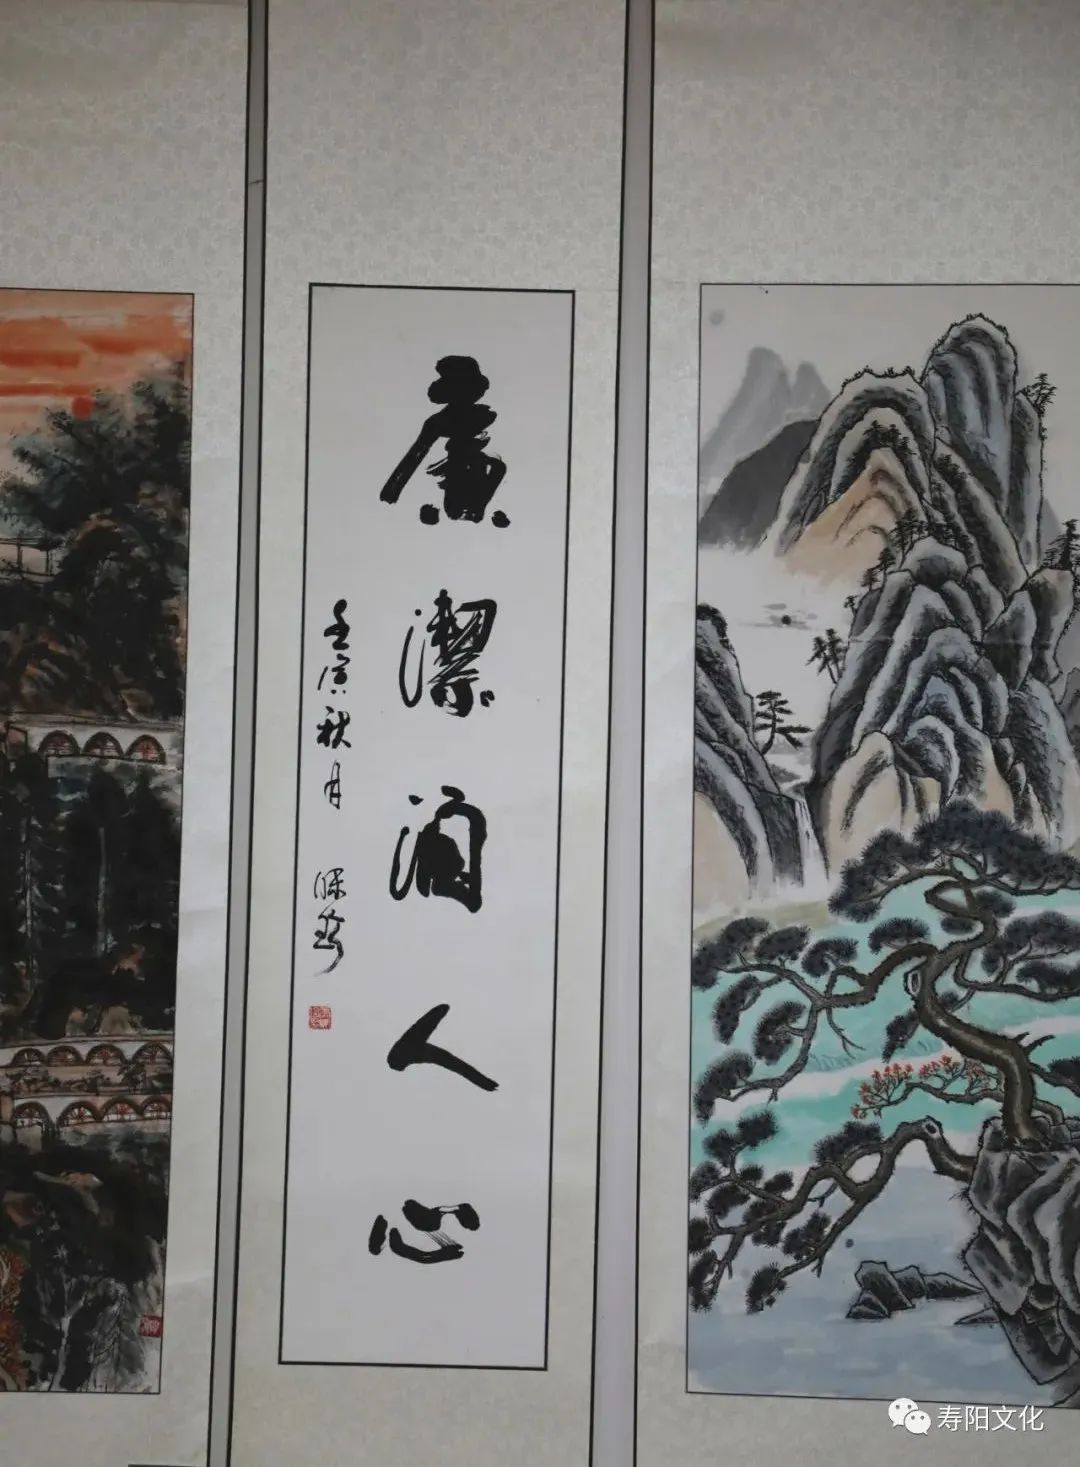 廉潔润人心
壬寅秋月
寿阳文化